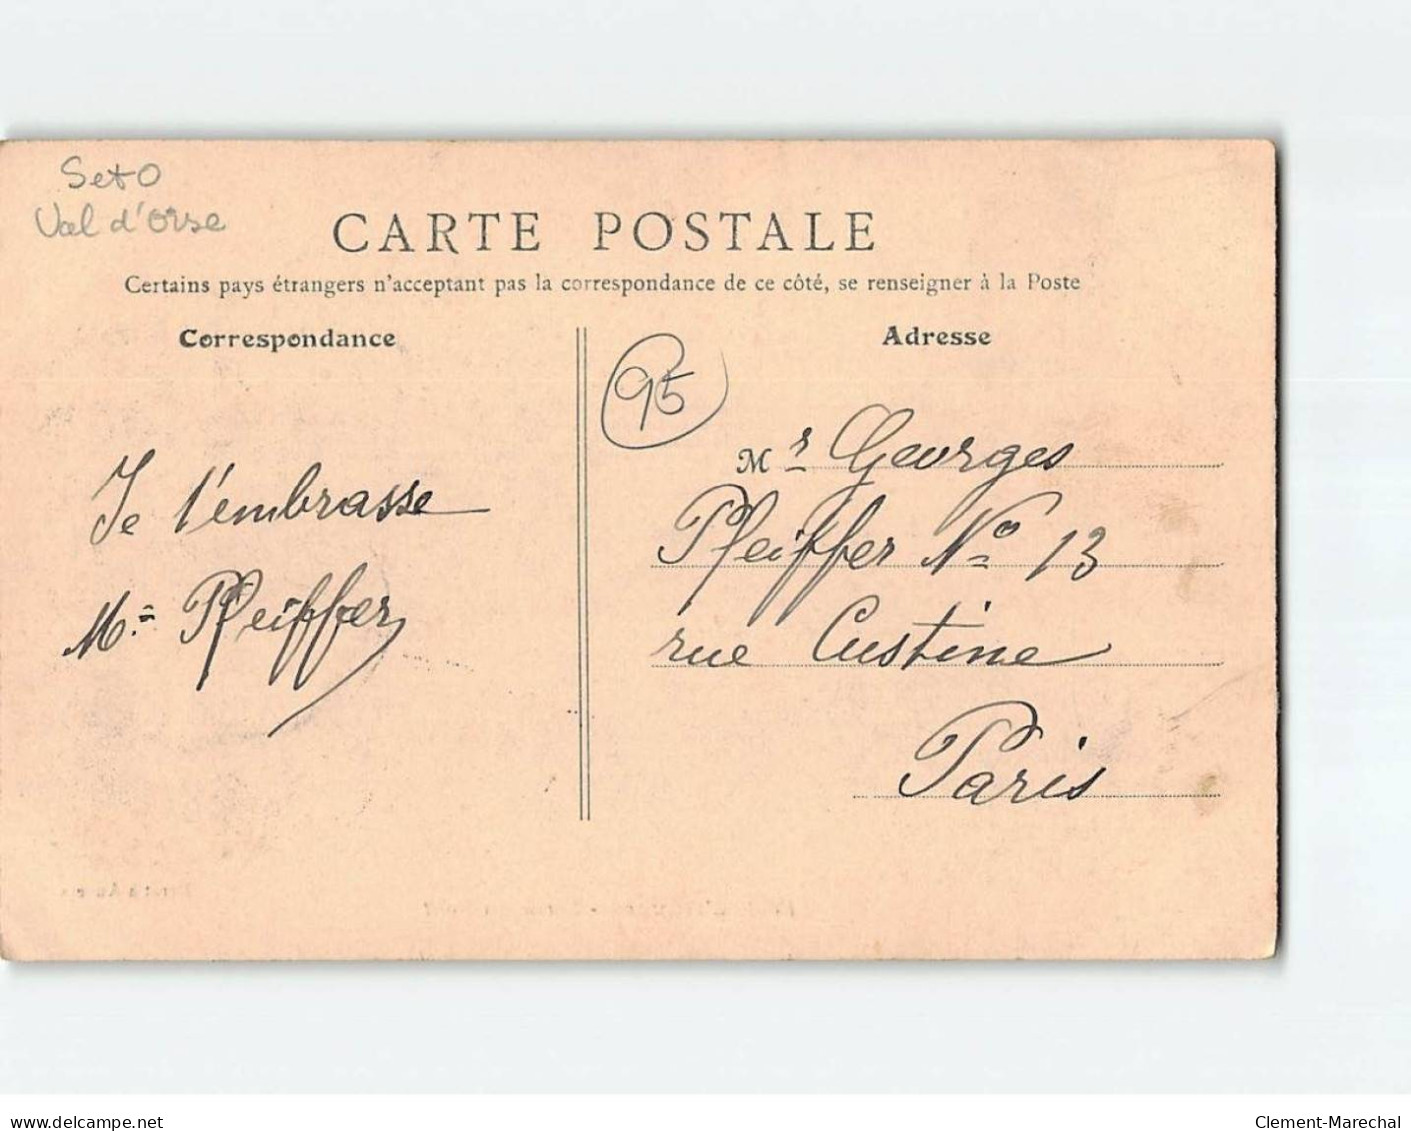 Set O
Val d'orse
CARTE POSTALE
Certains pays étrangers n'acceptant pas la correspondance de ce côté, se renseigner à la Poste
Correspondance
Adresse
95
Je t'embrasse
Me Pfeiffer
Mr Georges
Pfeiffer No 13
rue Custine
Paris
www.delcampe.net
Clement-Marechal